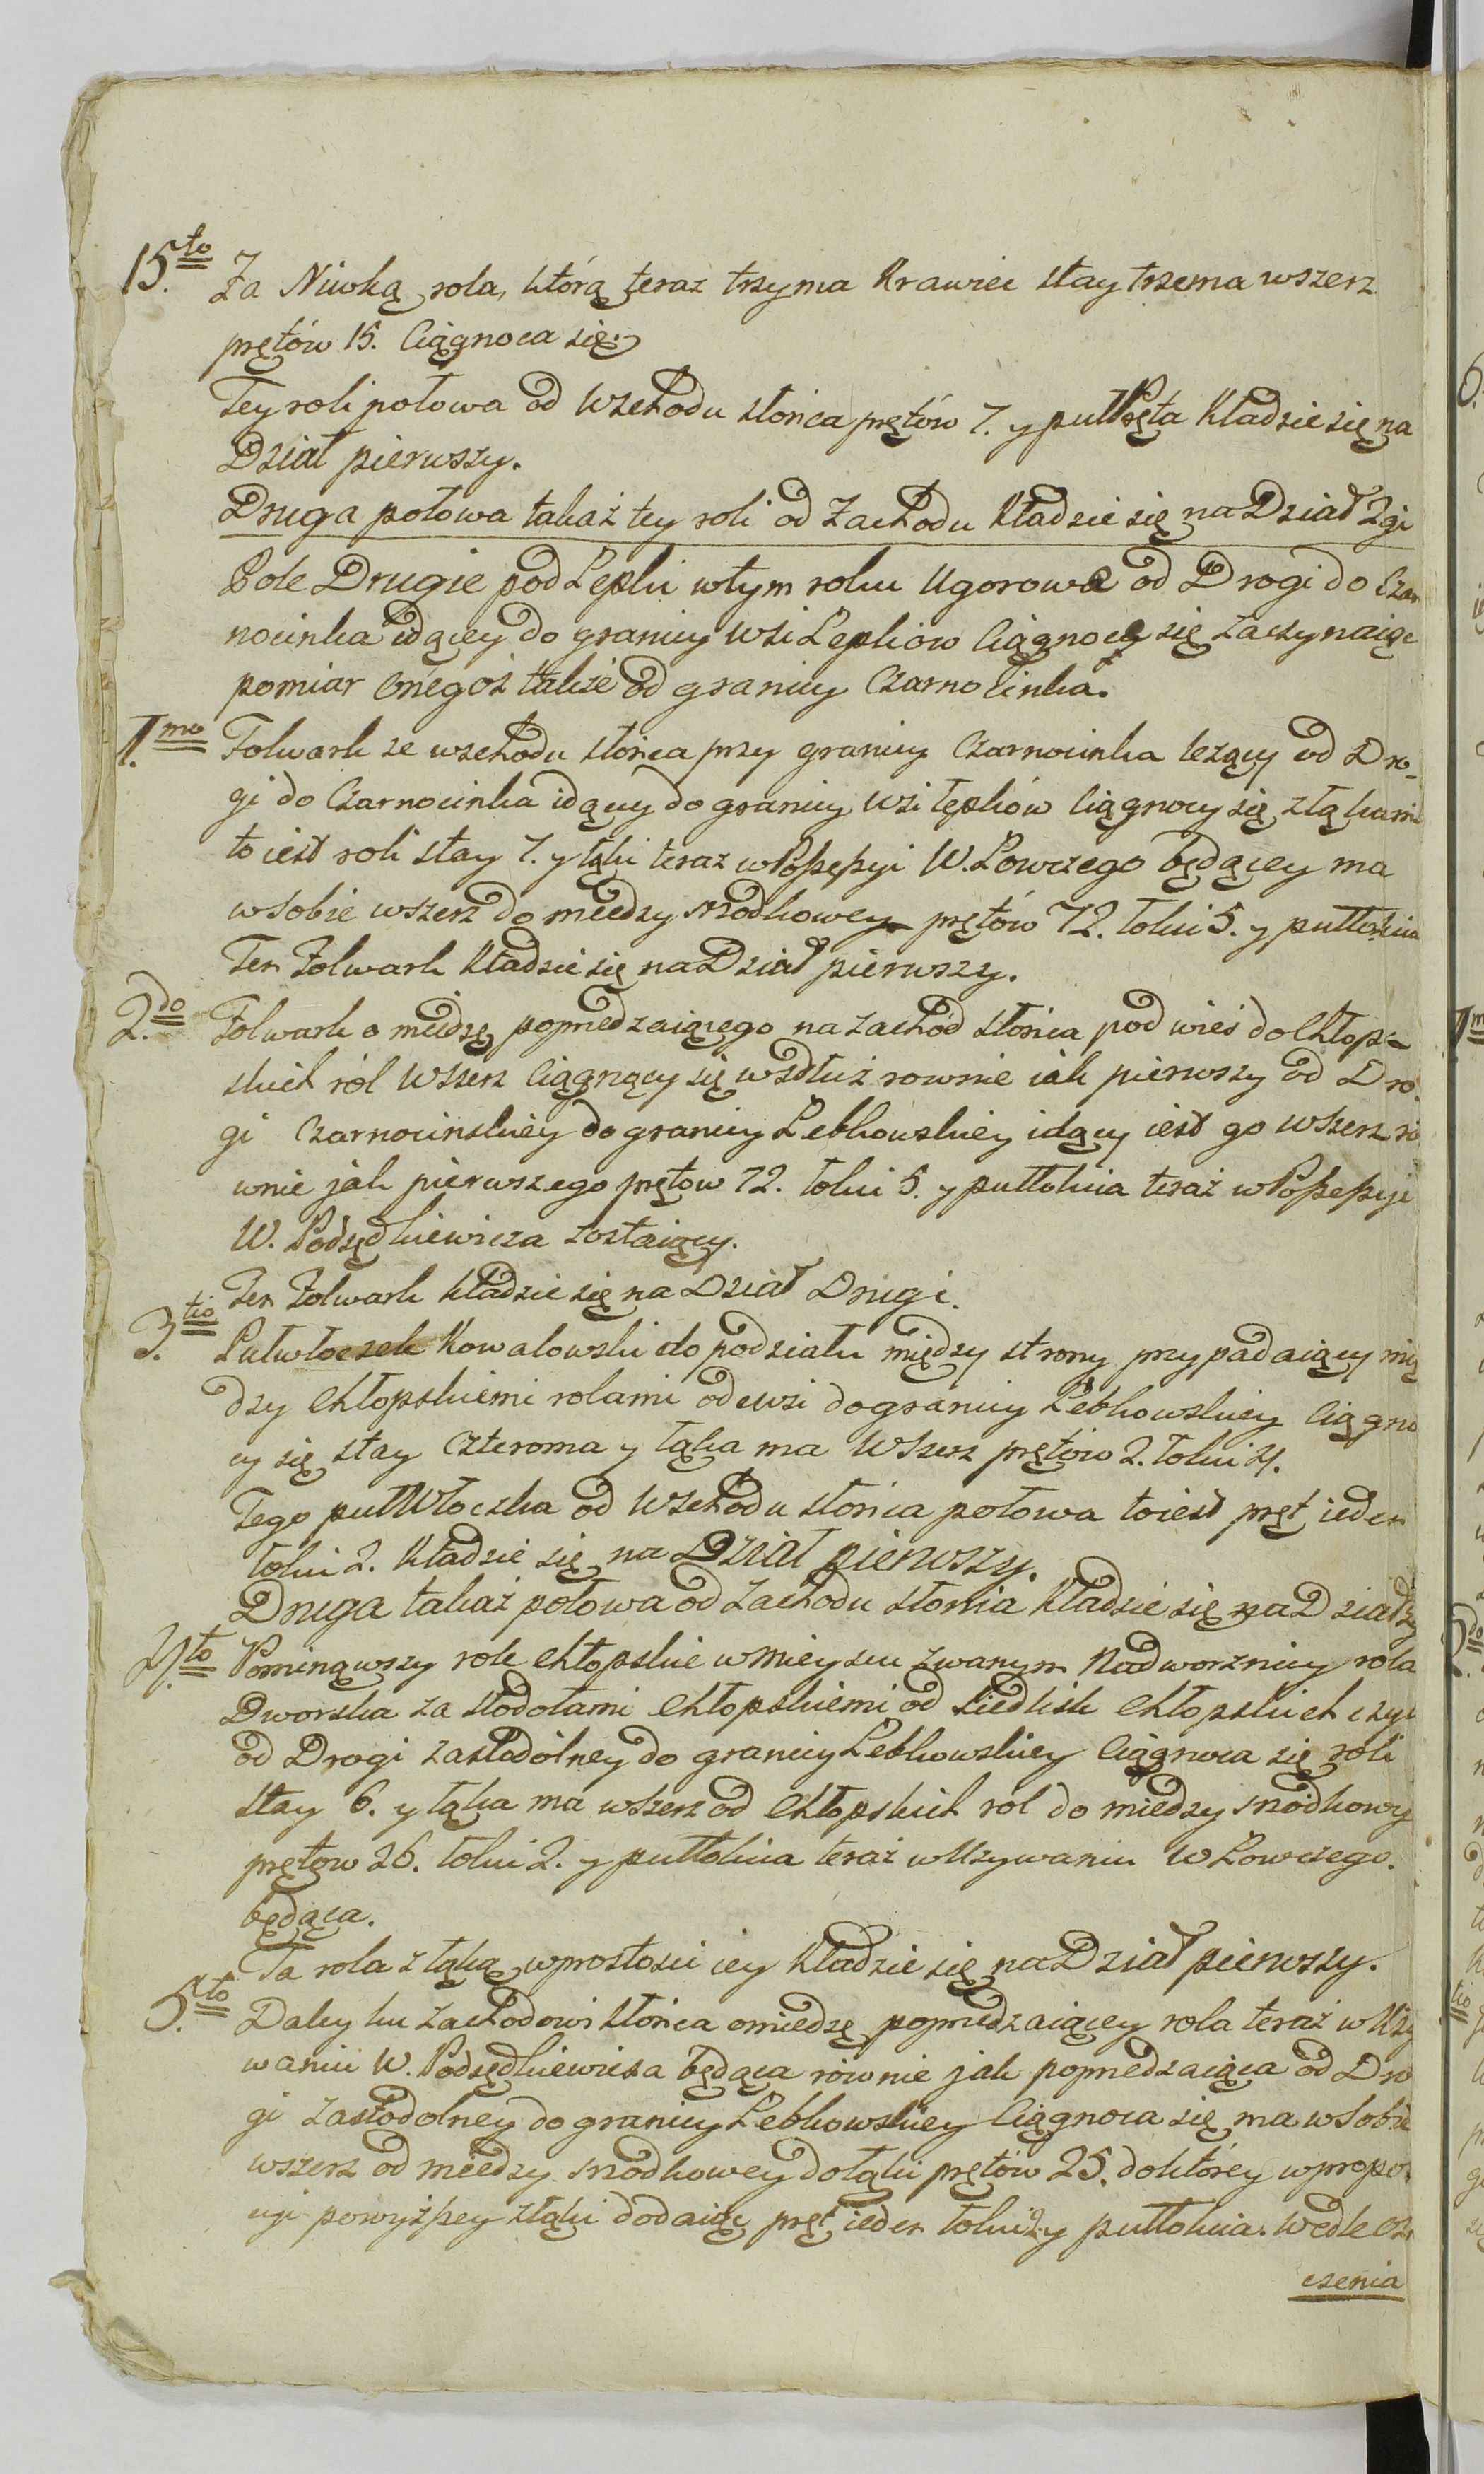 15.to Za Niwką rola, którą teraz trzyma Krawiec stay trzema wszerz
prętów 15. Ciągnoca się.
Tey roli połowa od Wschodu słońca prętów 7. y pułPręta Kładzie się na
Dział pierwszy.
Druga połowa takaż tey roli od Zachodu Kładzie się na Dział 2gi
Pole Drugie pod Lepki wtym roku Ugorowe od Drogi do Czar
nocinka idącey do granicy wsi Lepkiow Ciągnoce się zaczynaiąc
pomiar onegoż także od granicy Czarnocinka.
1.mo Folwark ze wschodu słońca przy granicy Czarnocinka leżący od Dro-
gi do Czarnocinka idącey do granicy wsi Łepków Ciągnocy się z łąkami
to iest roli stay 7. y łąki teraz w Possessyi W. Łowczego będącey ma
wsobie wszerz do miedzy srzodkowey prętów 72. łokci 5. y pułłokcia
Ten Folwark Kładzie się na Dział pierwszy.
2.do Folwark o miedzę poprzedzaiącego na zachód słońca pod wieś do Chłop-
skich ról Wszerz Ciągnący się wzdłuż rownie iak pierwszy od Dro-
gi Czarnocinskiey do granicy Lebkowskiey idący iest go wszerz ró
wnie jak pierwszego prętow 72. łokci 5. y pułłokcia teraz w Possessyi
W. Podsędkiewicza zostaiący.
Ten Folwark kładzie się na Dział Drugi.
3.tio Pułwłoczek Kowalowski do podziału między strony przypadaiący mię
dzy Chłopskiemi rolami odewsi do granicy Lebkowskiey Ciągno
cy się stay Czteroma y łąka ma Wszerz prętów 2. łokci 4.
Tego pułWłoczka od Wschodu słońca połowa toiest pręt ieden
łokci 2. Kładzie się na Dział pierwszy.
Druga takaż połowa od Zachodu słońca Kładzie się na Dział 2gi
4.to Pominąwszy role Chłopskie w mieyscu zwanym Nadworznicy rola
Dworska za stodołami Chłopskiemi od siedlisk Chłopskich czyli
od Drogi zastodólney do granicy Lebkowskiey Ciągnoca się roli
stay 6. y łąka ma wszerz od Chłopskich rol do miedzy srzodkowy
prętow 26. łokci 2. y pułłokcia teraz w Uzywaniu W Łowczego.
będąca.
Ta rola z łąką wprostosci iey Kładzie się na Dział pierwszy.
5.to Daley ku zachodowi słońca o miedzę poprzedzaiącey rola teraz w Uży
waniu W. Podsędkiewicza będąca rownie jak poprzedzaiąca od Dro
gi zastodolney do granicy Lebkowskiey Ciągnoca się ma wsobie
wszerz od miedzy srzodkowey do łąki prętów 25. do którey w propor
cyi powyższey z łąki dodaiąc pręt ieden łokci 2. y pułłokcia. Wedle
czenia